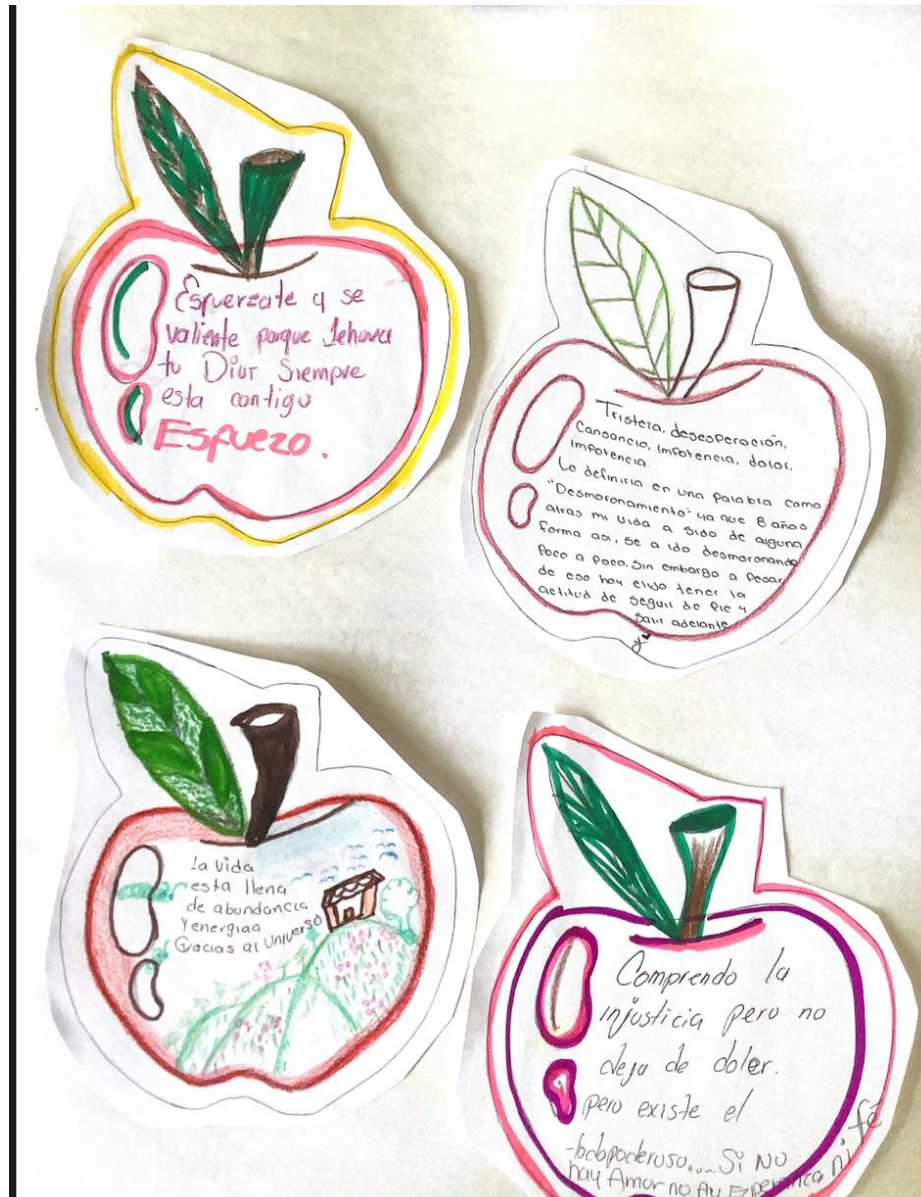 Esfuerzate y se
valiente porque Jehova
tu Dios Siempre
esta contigo
Esfuezo.
Tristeza, desesperación,
Cansancio, impotencia, dolor,
impotencia.
Lo definiria en una palabra como
"Desmoronamiento" ya que 8 años
atras mi vida a sido de alguna
forma asi, se a ido desmoronando
Poco a poco. Sin embargo a pesar
de eso hoy elijo tener la
actitud de seguir de pie y
salir adelante
La vida
esta llena
de abundancia
Y energiaa
Gracias al Universo
Comprendo la
injusticia pero no
deja de doler.
pero existe el
todopoderoso.... Si No
hay Amor no Ay Esperanza ni fé